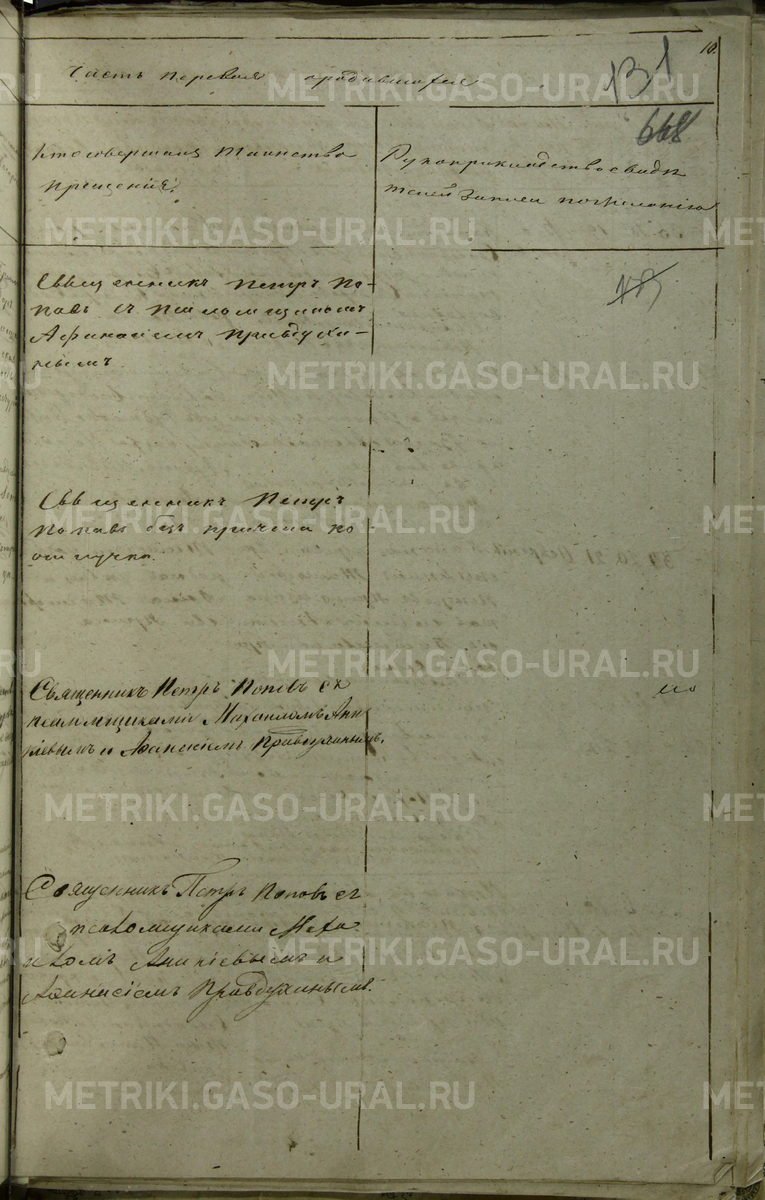 10.
Часть первая о родившихся
131
668
Кто совершалъ таинство
крещенія.
Рукоприкладство свидѣ
телей записи по желанію
Священникъ Петръ По-
повъ съ псаломщикомъ
Афанасіемъ Правдухи-
нымъ.
Священникъ Петръ
Поповъ безъ причета по
отлучкѣ.
Священникъ Петръ Поповъ съ
псаломщиками Михаиломъ Ани
кіевымъ и Афанасіемъ Правдухинымъ.
Священникъ Петръ Поповъ съ
псаломщиками Миха
иломъ Аникіевымъ и
Афанасіемъ Правдухинымъ.
METRIKI.GASO-URAL.RU